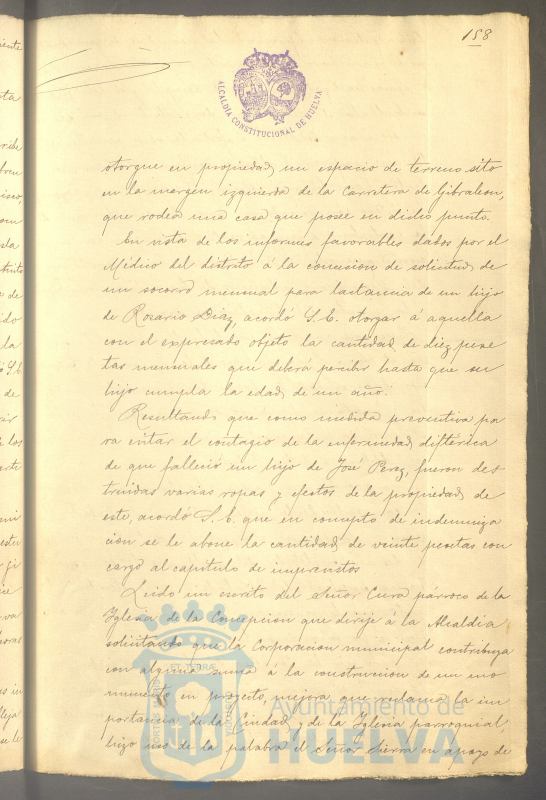 158
ALCALDÍA CONSTITUCIONAL DE HUELVA
otorgue en propiedad un espacio de terreno sito
en la margen izquierda de la Carretera de Gibraleon,
que rodea una casa que posee en dicho punto.
En vista de los informes favorables dados por el
Médico del distrito á la concesion de solicitud de
un socorro mensual para lactancia de un hijo
de Rosario Diaz, acordó S. E. otorgar á aquella
con el expresado objeto la cantidad de diez pese
tas mensuales que deberá percibir hasta que su
hijo cumpla la edad de un año.
Resultando que como medida preventiva pa
ra evitar el contagio de la enfermedad diftérica
de que falleció un hijo de José Perez, fueron des
truidas varias ropas y efectos de la propiedad de
este, acordó S. E. que en concepto de indemniza
cion se le abone la cantidad de veinte pesetas con
cargo al capitulo de imprevistos
Leido un escrito del Señor Cura párroco de la
Iglesia de la Concepcion que dirije á la Alcaldia
solicitando que la Corporacion municipal contribuya
con alguna suma á la construccion de un mo
numento en proyecto, mejora que reclama la im
portancia de la Ciudad y de la Iglesia parroquial
hizo uso de la palabra el Señor Sierra en apoyo de
Ayuntamiento de
HUELVA